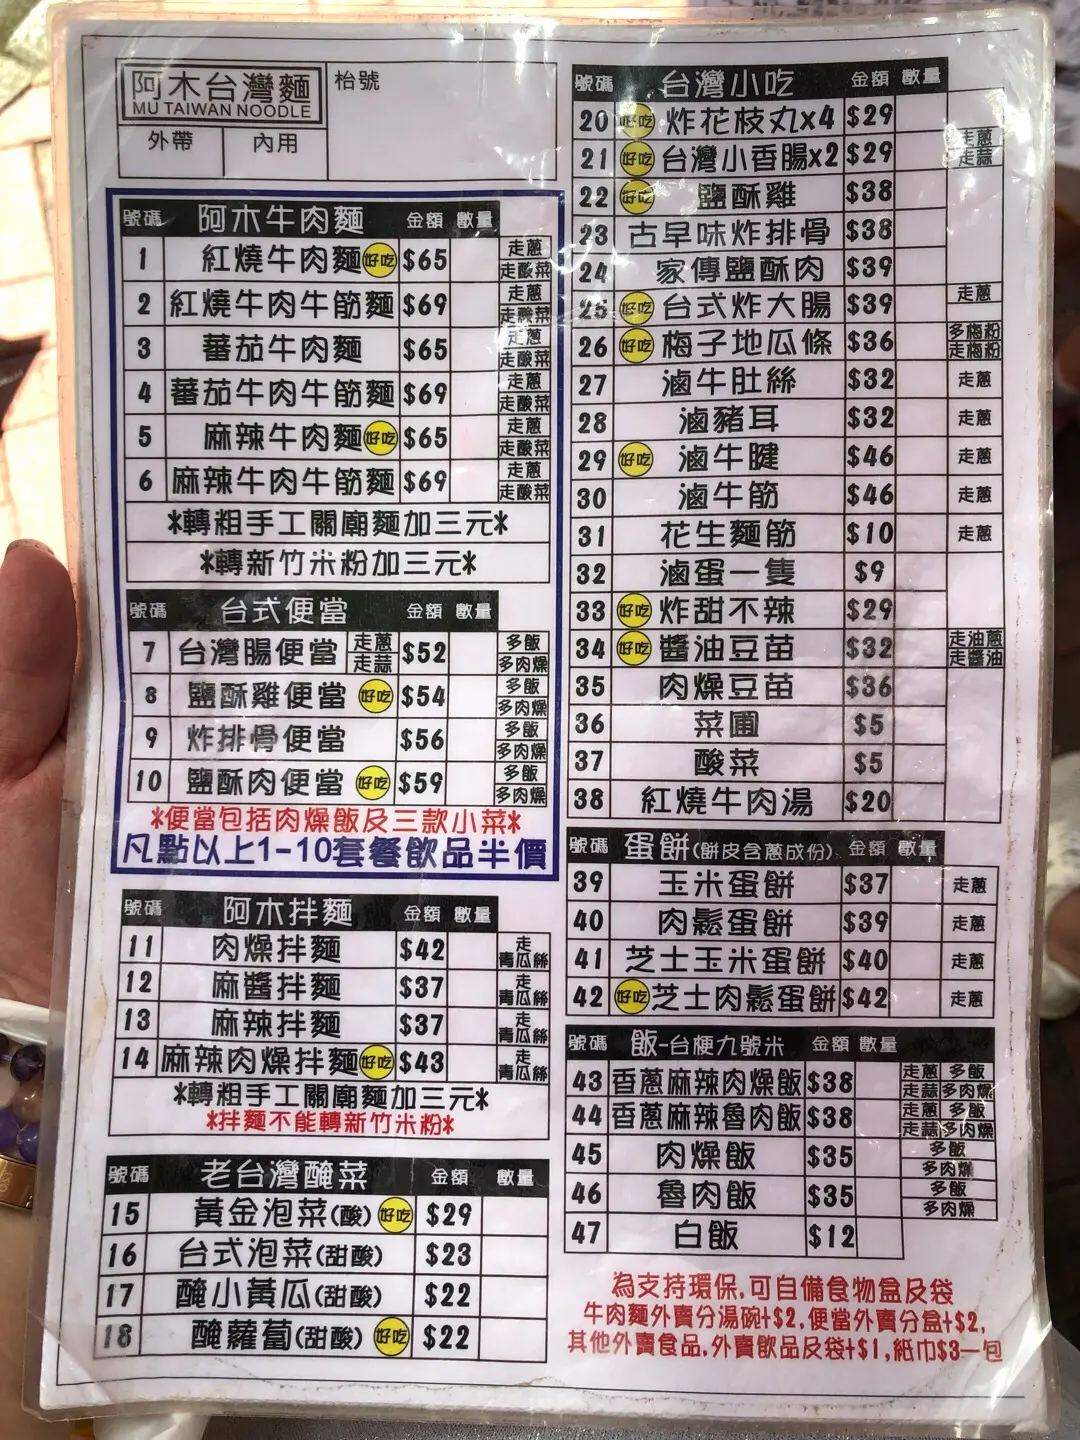 阿木台灣麵
MU TAIWAN NOODLE
枱號
外帶 內用
號碼 阿木牛肉麵 金額 數量
1 紅燒牛肉麵 好吃 $65 走蔥 走酸菜
2 紅燒牛肉牛筋麵 $69 走蔥 走酸菜
3 蕃茄牛肉麵 $65 走蔥 走酸菜
4 蕃茄牛肉牛筋麵 $69 走蔥 走酸菜
5 麻辣牛肉麵 好吃 $65 走蔥 走酸菜
6 麻辣牛肉牛筋麵 $69 走蔥 走酸菜
*轉粗手工關廟麵加三元*
*轉新竹米粉加三元*
號碼 台式便當 金額 數量
7 台灣腸便當 走蔥 走蒜 $52 多飯 多肉燥
8 鹽酥雞便當 好吃 $54 多飯 多肉燥
9 炸排骨便當 $56 多飯 多肉燥
10 鹽酥肉便當 好吃 $59 多飯 多肉燥
*便當包括肉燥飯及三款小菜*
凡點以上1-10套餐飲品半價
號碼 阿木拌麵 金額 數量
11 肉燥拌麵 $42 走青瓜絲
12 麻醬拌麵 $37 走青瓜絲
13 麻辣拌麵 $37 走青瓜絲
14 麻辣肉燥拌麵 好吃 $43 走青瓜絲
*轉粗手工關廟麵加三元*
*拌麵不能轉新竹米粉*
號碼 老台灣醃菜 金額 數量
15 黃金泡菜(酸) 好吃 $29
16 台式泡菜(甜酸) $23
17 醃小黃瓜(甜酸) $22
18 醃蘿蔔(甜酸) 好吃 $22
號碼 台灣小吃 金額 數量
20 好吃 炸花枝丸x4 $29
21 好吃 台灣小香腸x2 $29 走蔥 走蒜
22 好吃 鹽酥雞 $38
23 古早味炸排骨 $38
24 家傳鹽酥肉 $39
25 好吃 台式炸大腸 $39 走蔥
26 好吃 梅子地瓜條 $36 多梅粉 走梅粉
27 滷牛肚絲 $32 走蔥
28 滷豬耳 $32 走蔥
29 好吃 滷牛腱 $46 走蔥
30 滷牛筋 $46 走蔥
31 花生麵筋 $10 走蔥
32 滷蛋一隻 $9
33 好吃 炸甜不辣 $29
34 好吃 醬油豆苗 $32 走油蔥 走醬油
35 肉燥豆苗 $36
36 菜圃 $5
37 酸菜 $5
38 紅燒牛肉湯 $20
號碼 蛋餅(餅皮含蔥成份) 金額 數量
39 玉米蛋餅 $37 走蔥
40 肉鬆蛋餅 $39 走蔥
41 芝士玉米蛋餅 $40 走蔥
42 好吃 芝士肉鬆蛋餅 $42 走蔥
號碼 飯-台梗九號米 金額 數量
43 香蔥麻辣肉燥飯 $38 走蔥 多飯 走蒜 多肉燥
44 香蔥麻辣魯肉飯 $38 走蔥 多飯 走蒜 多肉燥
45 肉燥飯 $35 多飯 多肉燥
46 魯肉飯 $35 多飯 多肉燥
47 白飯 $12
為支持環保,可自備食物盒及袋
牛肉麵外賣分湯碗+$2,便當外賣分盒+$2,
其他外賣食品,外賣飲品及袋+$1,紙巾$3一包